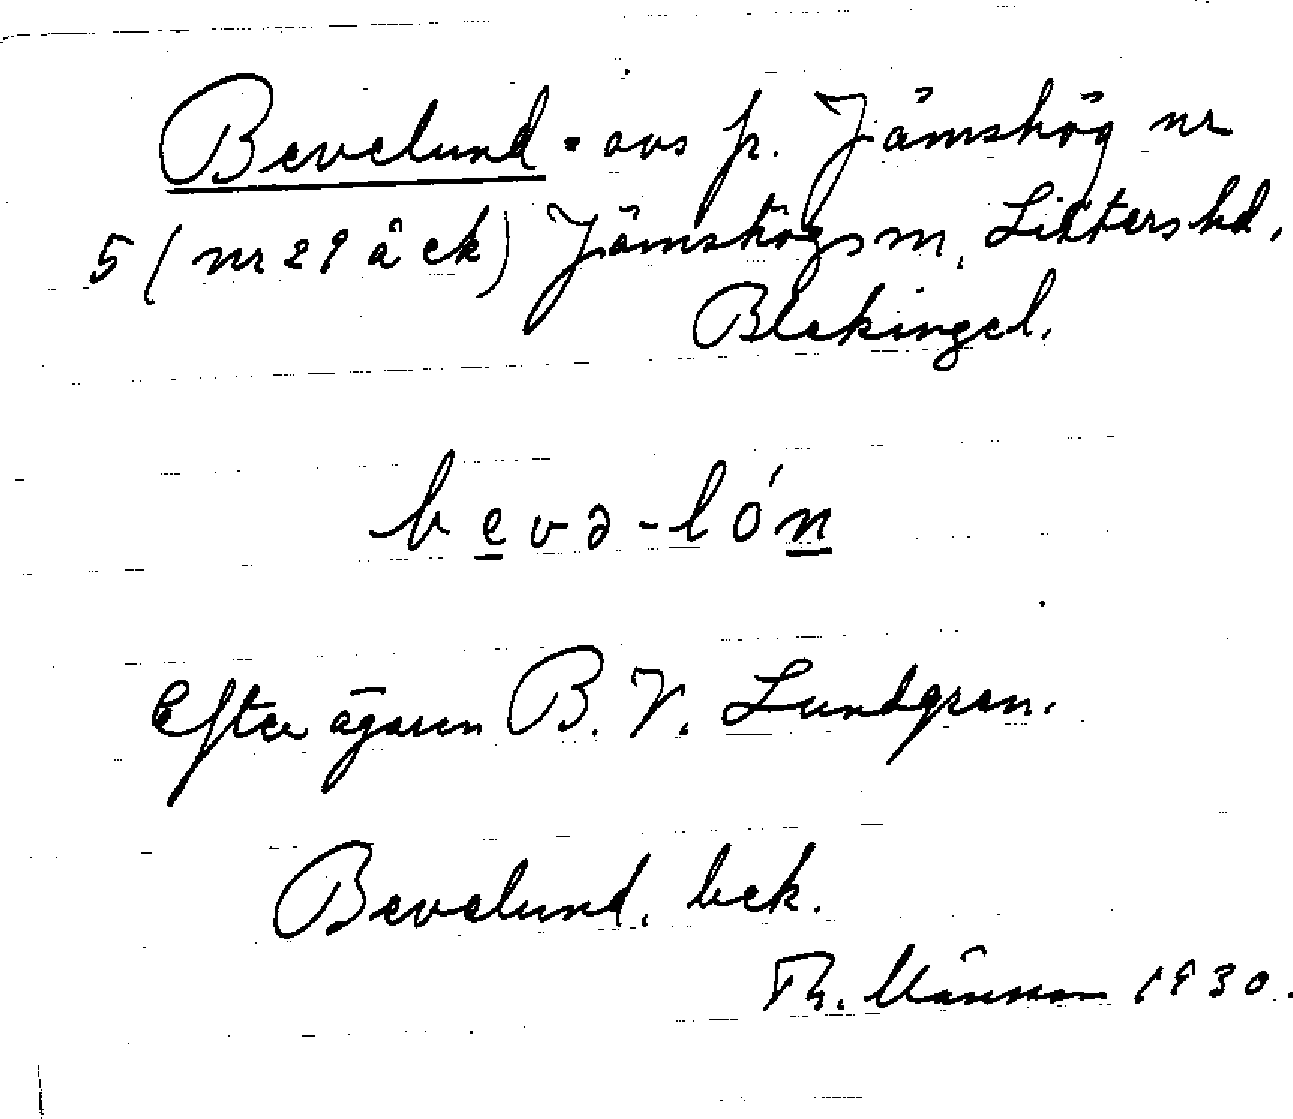 Bevelund - avs p. Jämshög nr
5 (nr 29 å ek) Jämshögs sn, Listers hd,
Blekinge l.
bevə-lón
Efter ägaren B. V. Lundgren.
Bevelund. bek.
Th. 1930.